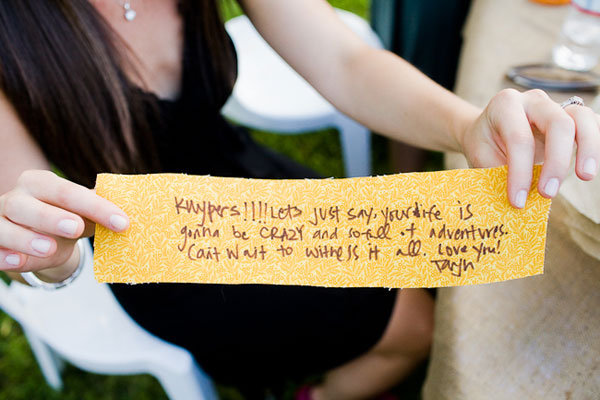 Kuypers!!!! Lets just say, your life is
gonna be CRAZY and so full of adventures.
Can't wait to witness it all. Love you!
Taryn